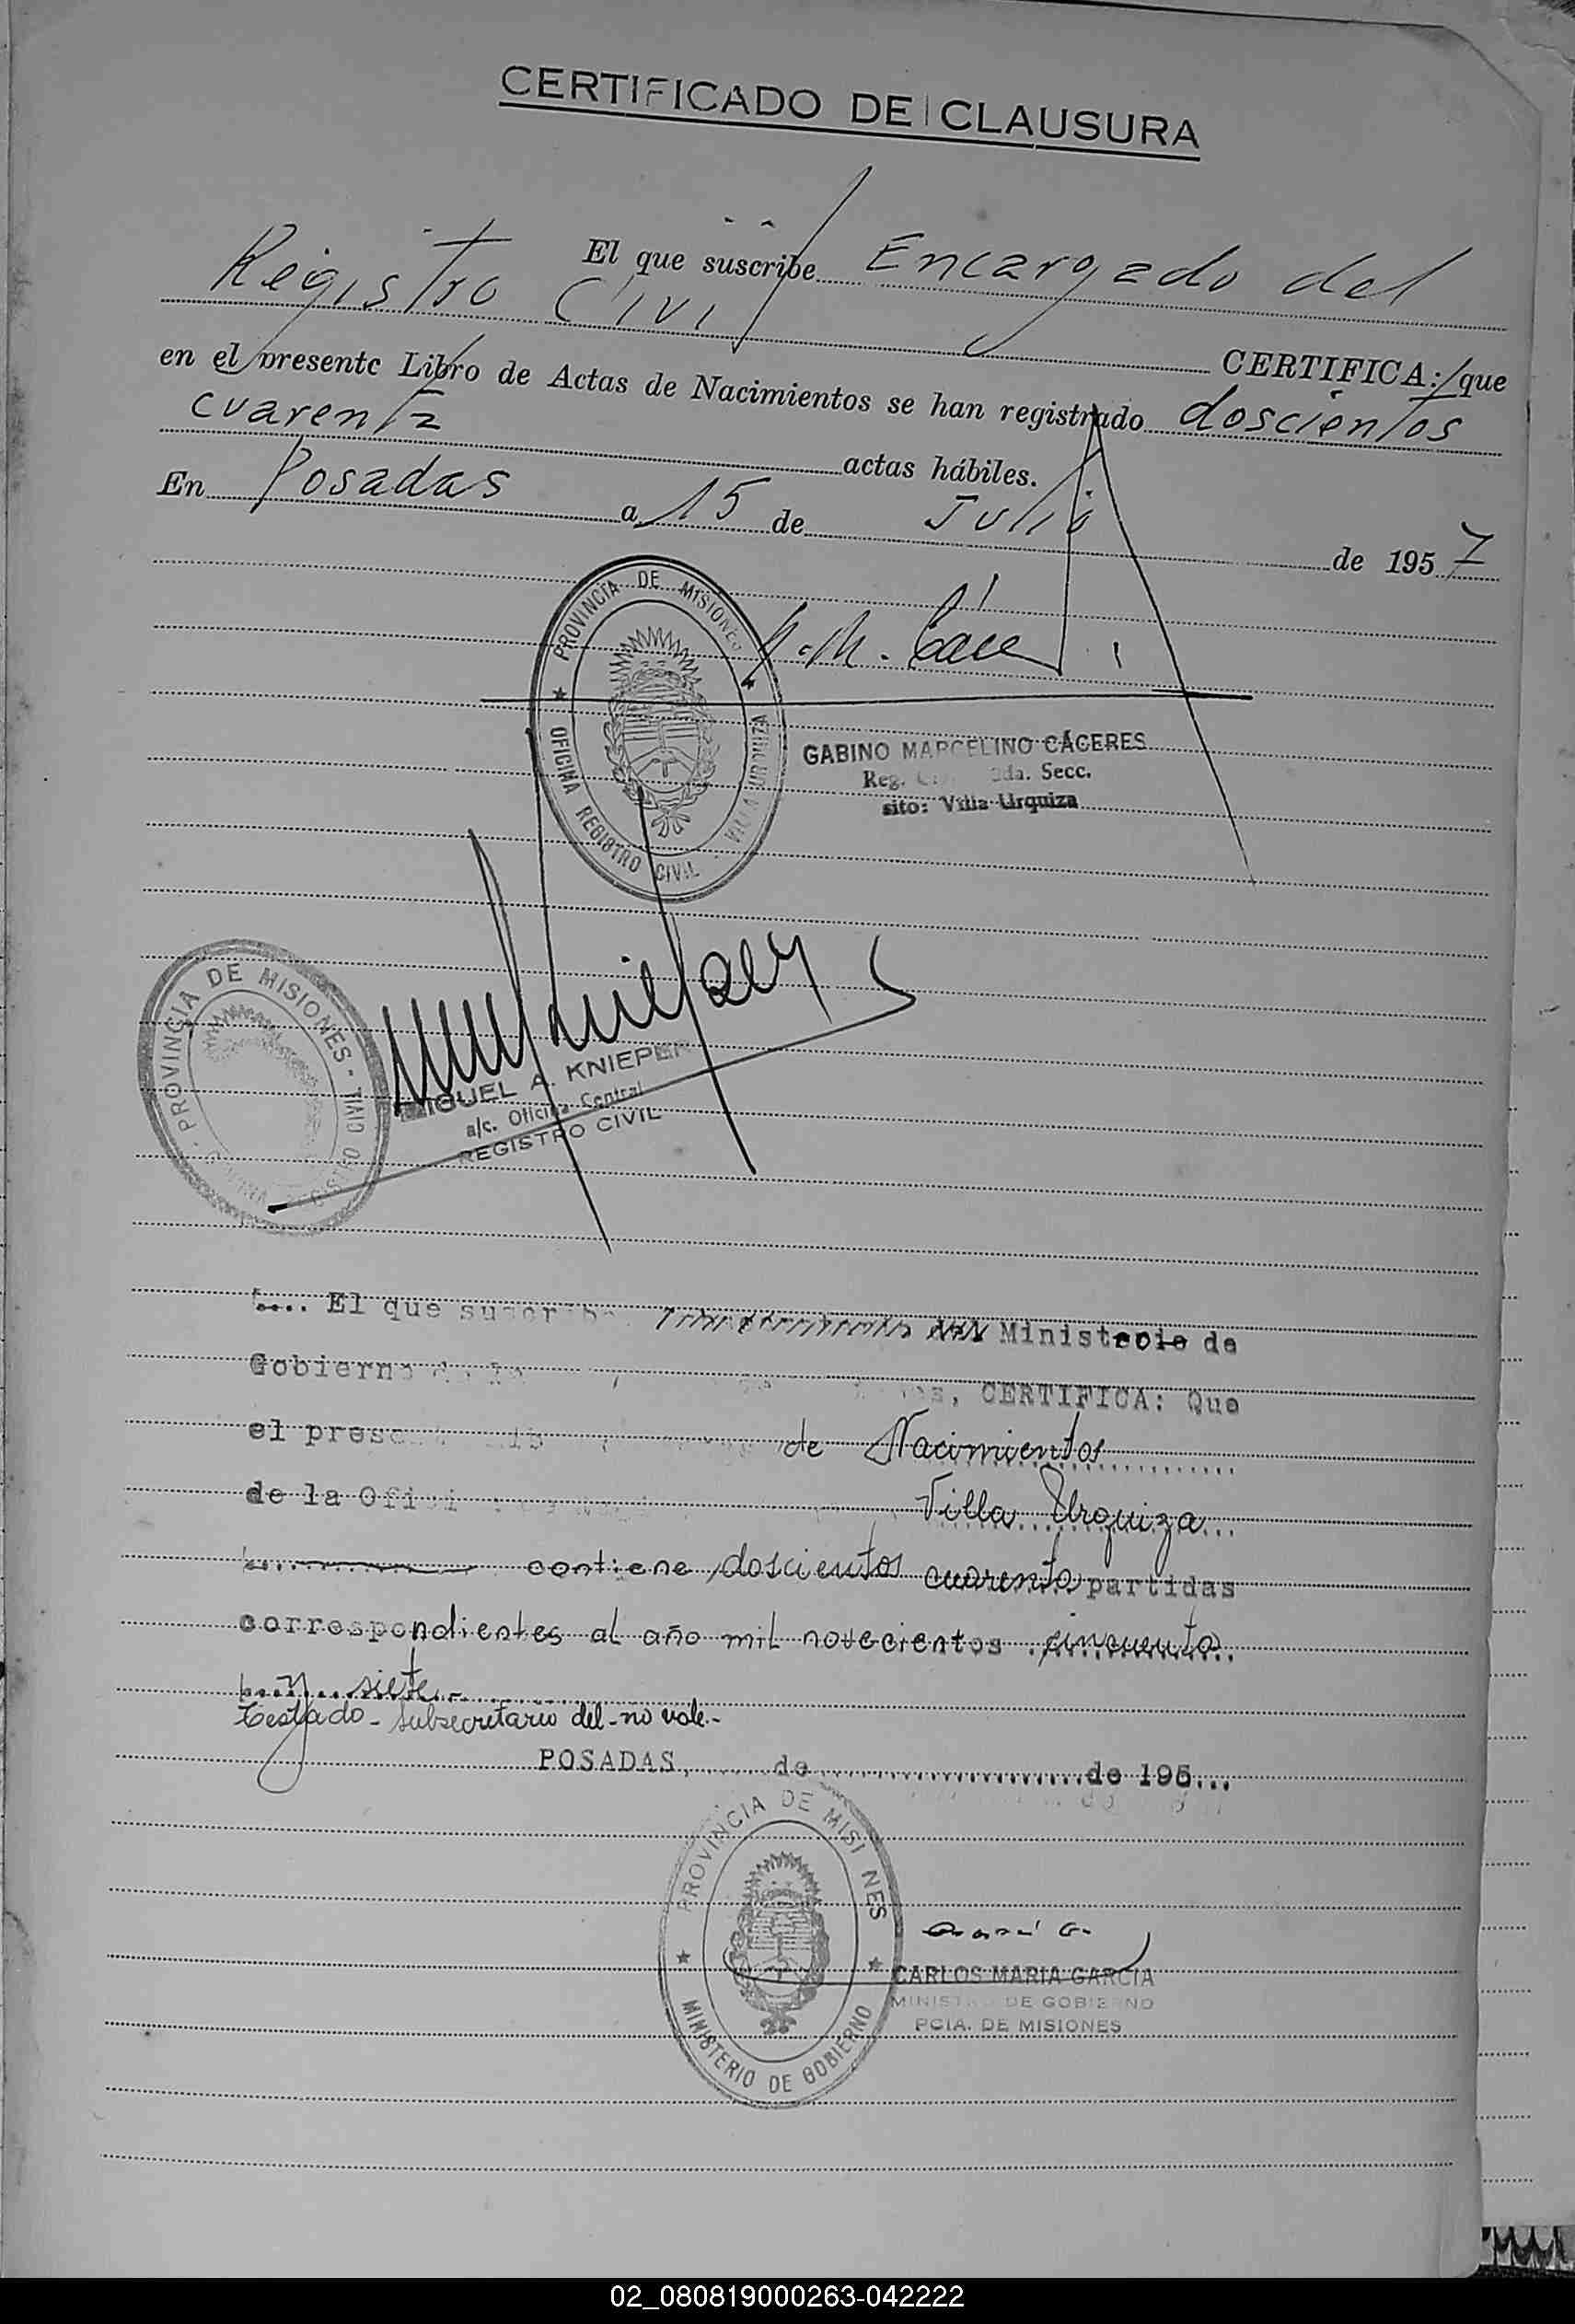 CERTIFICADO DE CLAUSURA
El que suscribe Encargado del
Registro Civil CERTIFICA: que
en el presente Libro de Actas de Nacimientos se han registrado doscientos
cuarenta actas hábiles.
En Posadas a 15 de Julio de 1957
PROVINCIA DE MISIONES
OFICINA REGISTRO CIVIL - VILLA URQUIZA
GABINO MARCELINO CÁCERES
Reg. 2da. Secc.
sito: Villa Urquiza
PROVINCIA DE MISIONES
MIGUEL A. KNIEPER
a/c. Oficina Central
REGISTRO CIVIL
El que suscribe Ministerio de
Gobierno CERTIFICA: Que
el de Nacimientos
de la Villa Urquiza
contiene doscientos cuarenta partidas
correspondientes al año mil novecientos cincuenta
y siete.-
Testado - subsecretario del - no vale.-
POSADAS, de de 195
PROVINCIA DE MISIONES
MINISTERIO DE GOBIERNO
CARLOS MARIA GARCIA
MINISTRO DE GOBIERNO
PCIA. DE MISIONES
02_080819000263-042222